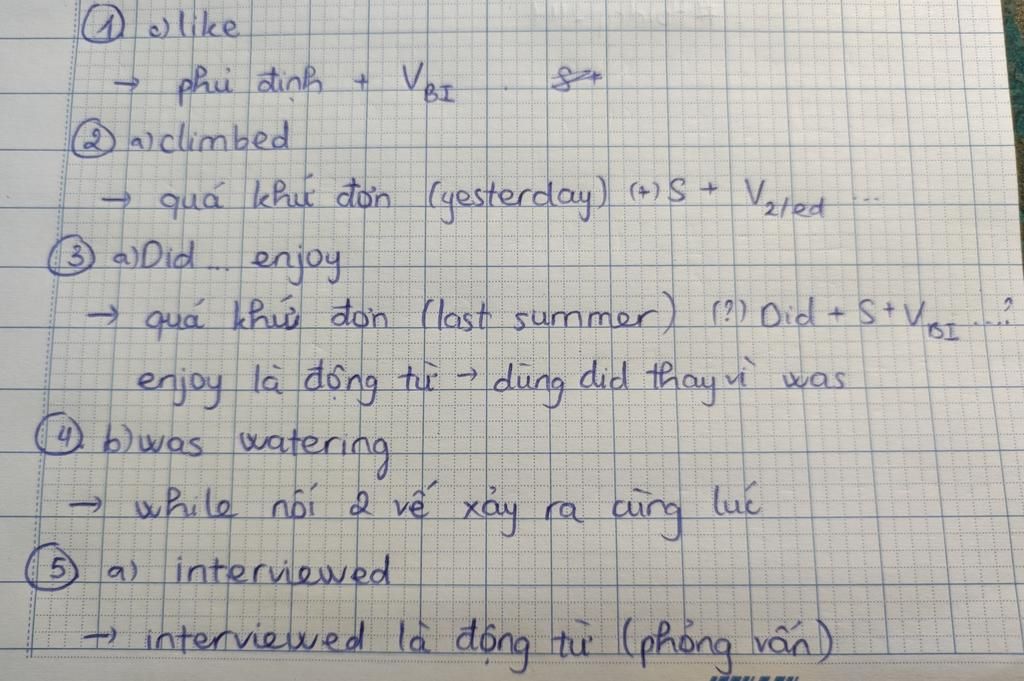 ① c) like
→ phủ định + VBI.
② a) climbed
→ quá khứ đơn (yesterday) (+) S + V2/ed ...
③ a) Did ... enjoy
→ quá khứ đơn (last summer) (?) Did + S + VBI ...?
enjoy là động từ → dùng did thay vì was
④ b) was watering
→ while nối 2 vế xảy ra cùng lúc
⑤ a) interviewed
→ interviewed là động từ (phỏng vấn)